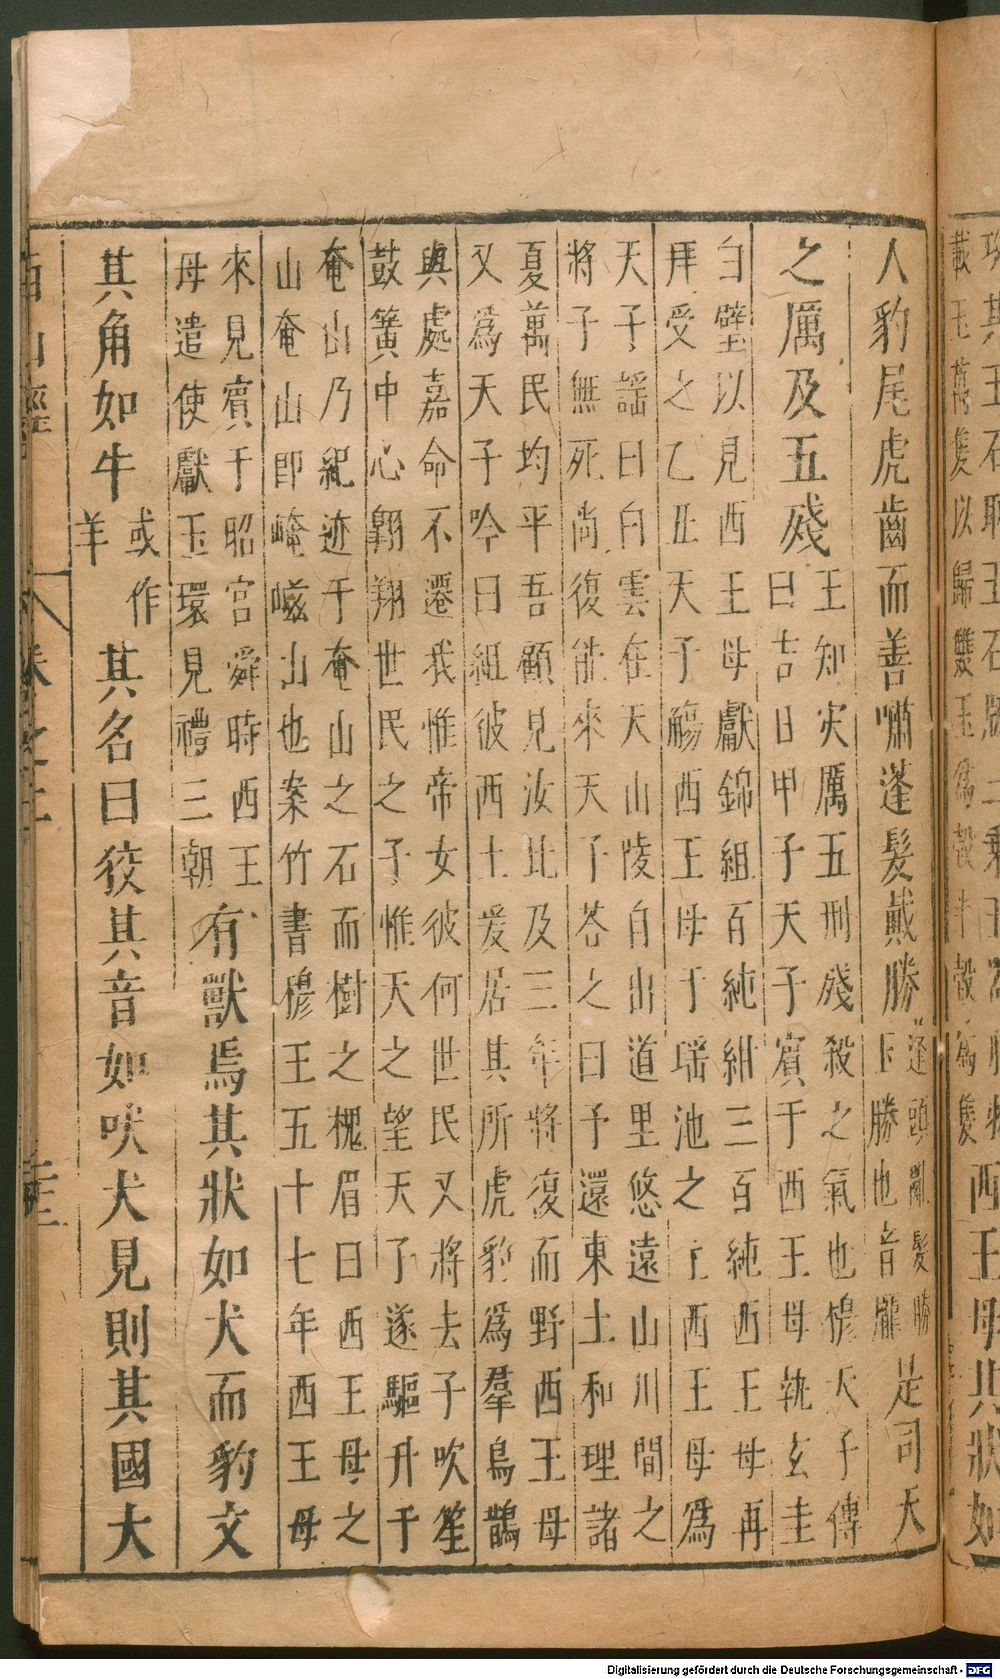 其玉石取玉石版三乘玉
載玉萬隻以歸雙玉爲瑴半瑴爲隻
西王母其狀如
人豹尾虎齒而善嘯蓬髮戴勝
蓬頭亂髮勝
玉勝也音龐
是司天
之厲及五殘
王知灾厲五刑殘殺之氣也穆天子傳
曰吉日甲子天子賓于西王母執玄圭
白璧以見西王母獻錦組百純紺三百純西王母再
拜受之乙丑天子觴西王母于瑤池之上西王母爲
天子謡曰白雲在天山陵自出道里悠遠山川間之
將子無死尚復能來天子荅之曰予還東土和理諸
夏萬民均平吾顧見汝比及三年將復而野西王母
又爲天子吟曰組彼西土爰居其所虎豹爲羣烏鵲
與處嘉命不遷我惟帝女彼何世民又將去子吹笙
鼓簧中心翱翔世民之子惟天之望天子遂驅升于
奄山乃紀迹于奄山之石而樹之槐眉曰西王母之
山奄山卽崦嵫山也案竹書穆王五十七年西王母
來見賓于昭宮舜時西王
母遣使獻玉環見禮三朝
有獸焉其狀如犬而豹文
其角如牛
或作
羊
其名曰狡其音如吠犬見則其國大
西山經
卷之二
Digitalisierung gefördert durch die Deutsche Forschungsgemeinschaft - DFG